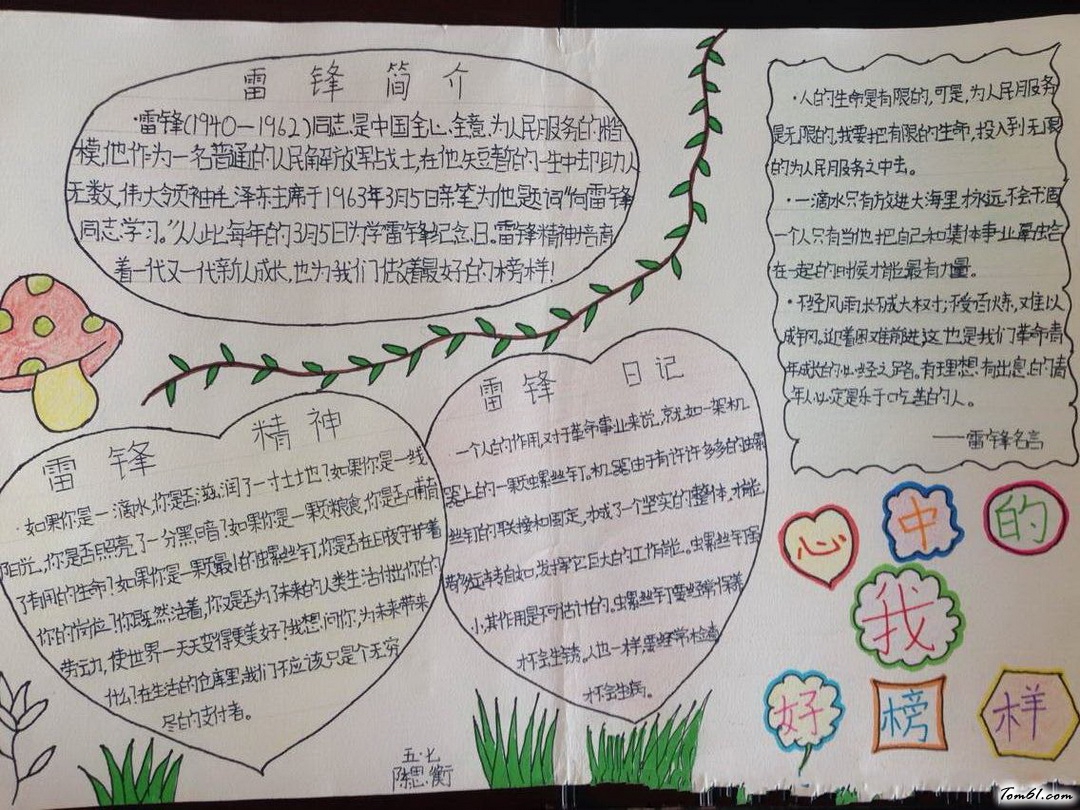 雷锋简介
·雷锋(1940—1962)同志,是中国全心全意为人民服务的楷
模,他作为一名普通的人民解放军战士,在他短暂的一生中却助人
无数,伟大领袖毛泽东主席于1963年3月5日亲笔为他题词“向雷锋
同志学习。”从此每年的3月5日为学雷锋纪念日。雷锋精神培育
着一代又一代新人成长,也为我们做着最好的榜样!
·人的生命是有限的,可是,为人民服务
是无限的,我要把有限的生命,投入到无限
的为人民服务之中去。
·一滴水只有放进大海里才永远不会干涸
一个人只有当他把自己和集体事业融合
在一起的时候才能最有力量。
·不经风雨,长不成大树;不受百炼,难以
成钢。迎着困难前进,这也是我们革命青
年成长的必经之路。有理想有出息的青
年人必定是乐于吃苦的人。
——雷锋名言
雷锋精神
·如果你是一滴水,你是否滋润了一寸土地?如果你是一线
阳光,你是否照亮了一分黑暗?如果你是一颗粮食,你是否哺育
了有用的生命?如果你是一颗最小的螺丝钉,你是否在日夜守护着
你的岗位?你既然活着,你是否为了未来的人类生活付出你的
劳动力,使世界一天天变得更美好?我想问你,为未来带来
什么?在生活的仓库里,我们不应该只是个无穷
尽的支付者。
雷锋日记
一个人的作用,对于革命事业来说,就如一架机
器上的一颗螺丝钉。机器由于有许许多多的螺
丝钉的联接和固定,才成了一个坚实的整体,才能
够运转自如,发挥它巨大的工作能。螺丝钉虽
小,其作用是不可估计的。螺丝钉要经常保养
才不会生锈。人也一样,要经常检查
才不会生病。
心中的
我
好榜样
五·七
陈思衡
Tom61.com